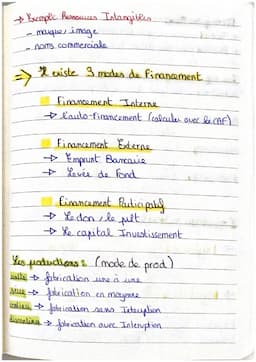 → Exemple Ressources Intangibles
- marque, image
- noms commerciale
⇒ Il existe 3 modes de Financement
Financement Interne
→ L'auto-financement (calculer avec la CAF)
Financement Externe
→ Emprunt Bancaire
→ Levée de Fond
Financement Participatif
→ Le don, le prêt
→ Le capital Investissement
Les productions : (mode de prod)
→ fabrication une à une
→ fabrication en moyenne
→ fabrication sans Interuption
→ fabrication avec Interuption